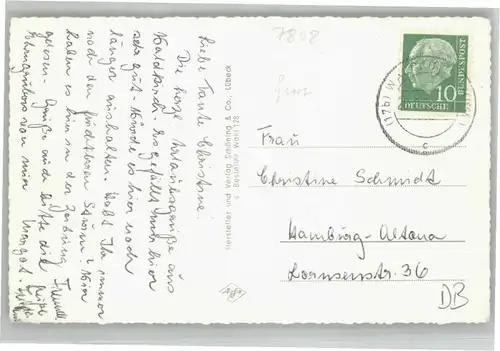 7808
Liebe Tante Christine!
Die beste Urlaubsgrüße aus
Waldkirch. Es gefällt mir hier
sehr gut. Würde es hier noch
länger aushalten. Habt Ihr immer
noch den furchtbaren Sturm? Wir
haben es hier in der Zeitung
gelesen. Grüße auch bitte die
von mir Margot.
Hersteller und Verlag Schöning & Co., Lübeck
DEUTSCHE
BUNDESPOST
10
(17b)
c
Frau
Christine Schmidt
Hamburg-Altona
Lornsenstr. 36
DB